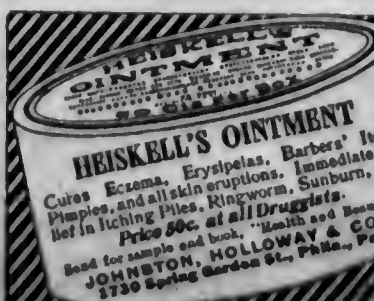 HEISKELL'S
OINTMENT
HEISKELL'S OINTMENT
Cures Eczema, Erysipelas, Barbers'
Pimples, and all skin eruptions. Immediate
lief in Itching Piles, Ringworm, Sunburn,
Price 50c. at all Druggists.
Send for sample and book, "Health and
JOHNSTON, HOLLOWAY & CO
1730 Spring Garden St., Phila.,